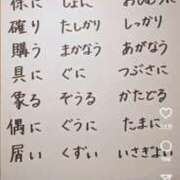 確り たしかり しっかり
購う まかなう あがなう
具に ぐに つぶさに
象る ぞうる かたどる
偶に ぐうに たまに
屑い くずい いさぎよい